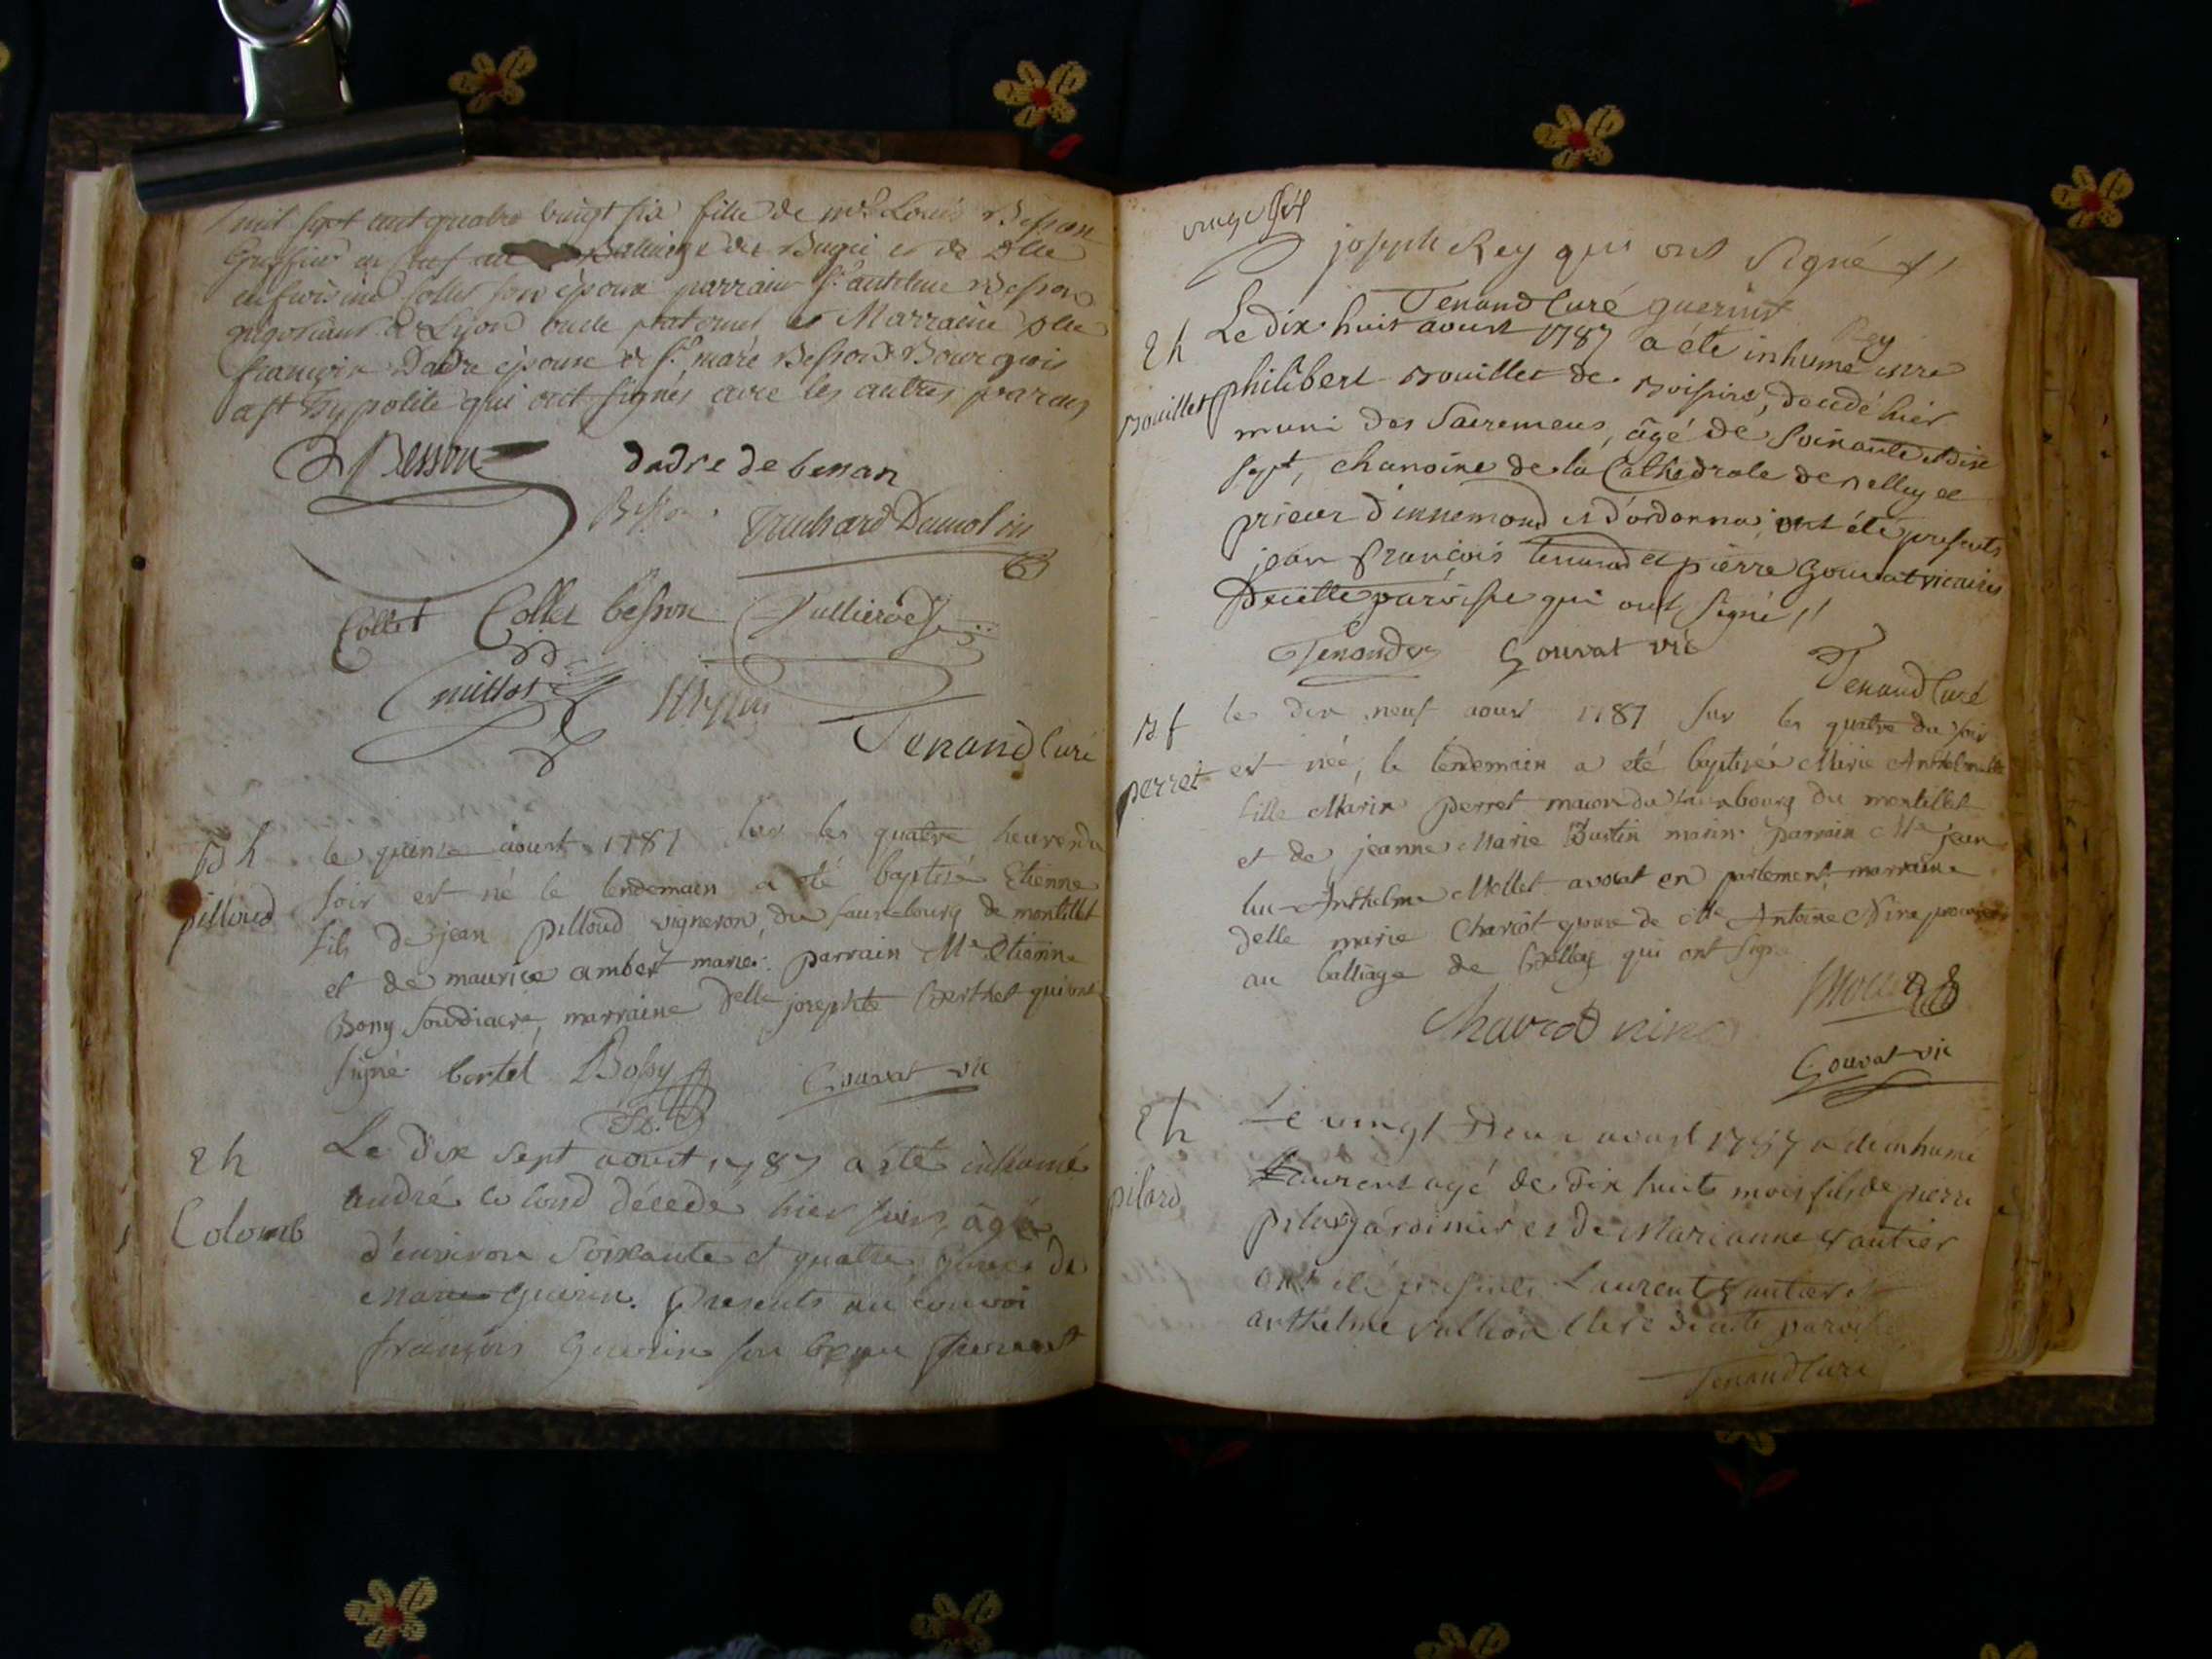 mil sept cent quatre vingt six fille de mre Louis Besson
Greffier en chef au Balliage du Bugei et de Dlle
collet son épouse parrain Sr antelme Besson
negotiant à Lyon oncle paternel et Marraine Dlle
françoise Dadre épouse de Sr marc Besson Bourgeois
a st hypolite qui ont signés avec les autres parens
Besson dadre de besson
Besson Truchard Dumolin
Collet Collet besson
millot
Tenand Curé
B h
pilloud
le quinze aoust 1787 sur les quatre heures du
soir est né le lendemain a eté baptisé Etienne
fils de jean pilloud vigneron du fauxbourg de montillet
et de maurice ambert mariés. parrain Me Etienne
Bony soudiacre, marraine delle josephte berthet qui ont
signé bertet Bony Gouvat vic
e h
Colomb
Le dix sept aoust 1787 a été inhumé
andré colond décédé hier soir, âgé
d'environ soixante et quatre, époux de
marie Guérin. Presents au convoi
françois Guerin son beau frere et
vingt sept
joseph Rey qui ont signé
Tenand Curé guerin Rey
e h
Bouillet
Le dix huit aoust 1787 a été inhumé
philibert Bouillet de Boissins, decedé hier
muni des Sacremens, âgé de soixante et dix
sept, chanoine de la Cathédrale de Belley et
prieur d'innemond et d'ordonna; ont été presents
jean françois tenand et pierre Gouvat vicaires
Decette paroisse qui ont signé
Tenand Gouvat vic
Tenand Curé
B f
perret
le dix neuf aoust 1787 sur les quatre du soir
est née, le lendemain a eté baptisée Marie Anthelmette
fille Marin perret maçon du fauxbourg du montillet
et de jeanne Marie Bustin mariés. parrain Me jean
luc Anthelme Mollet avocat en parlement, marraine
delle marie Charcot epouse de Me Antoine Nine procureur
au balliage de Belley qui ont signé
Charcot nine Mollet
Gouvat vic
e h
pilard
Le vingt deux aoust 1787 a été inhumé
Laurent agé de dix huit mois fils de pierre
pilard jardinier et de Marianne Gautier
ont été presents Laurent Gautier et
anthelme vullion clerc decette paroisse
Tenand Curé